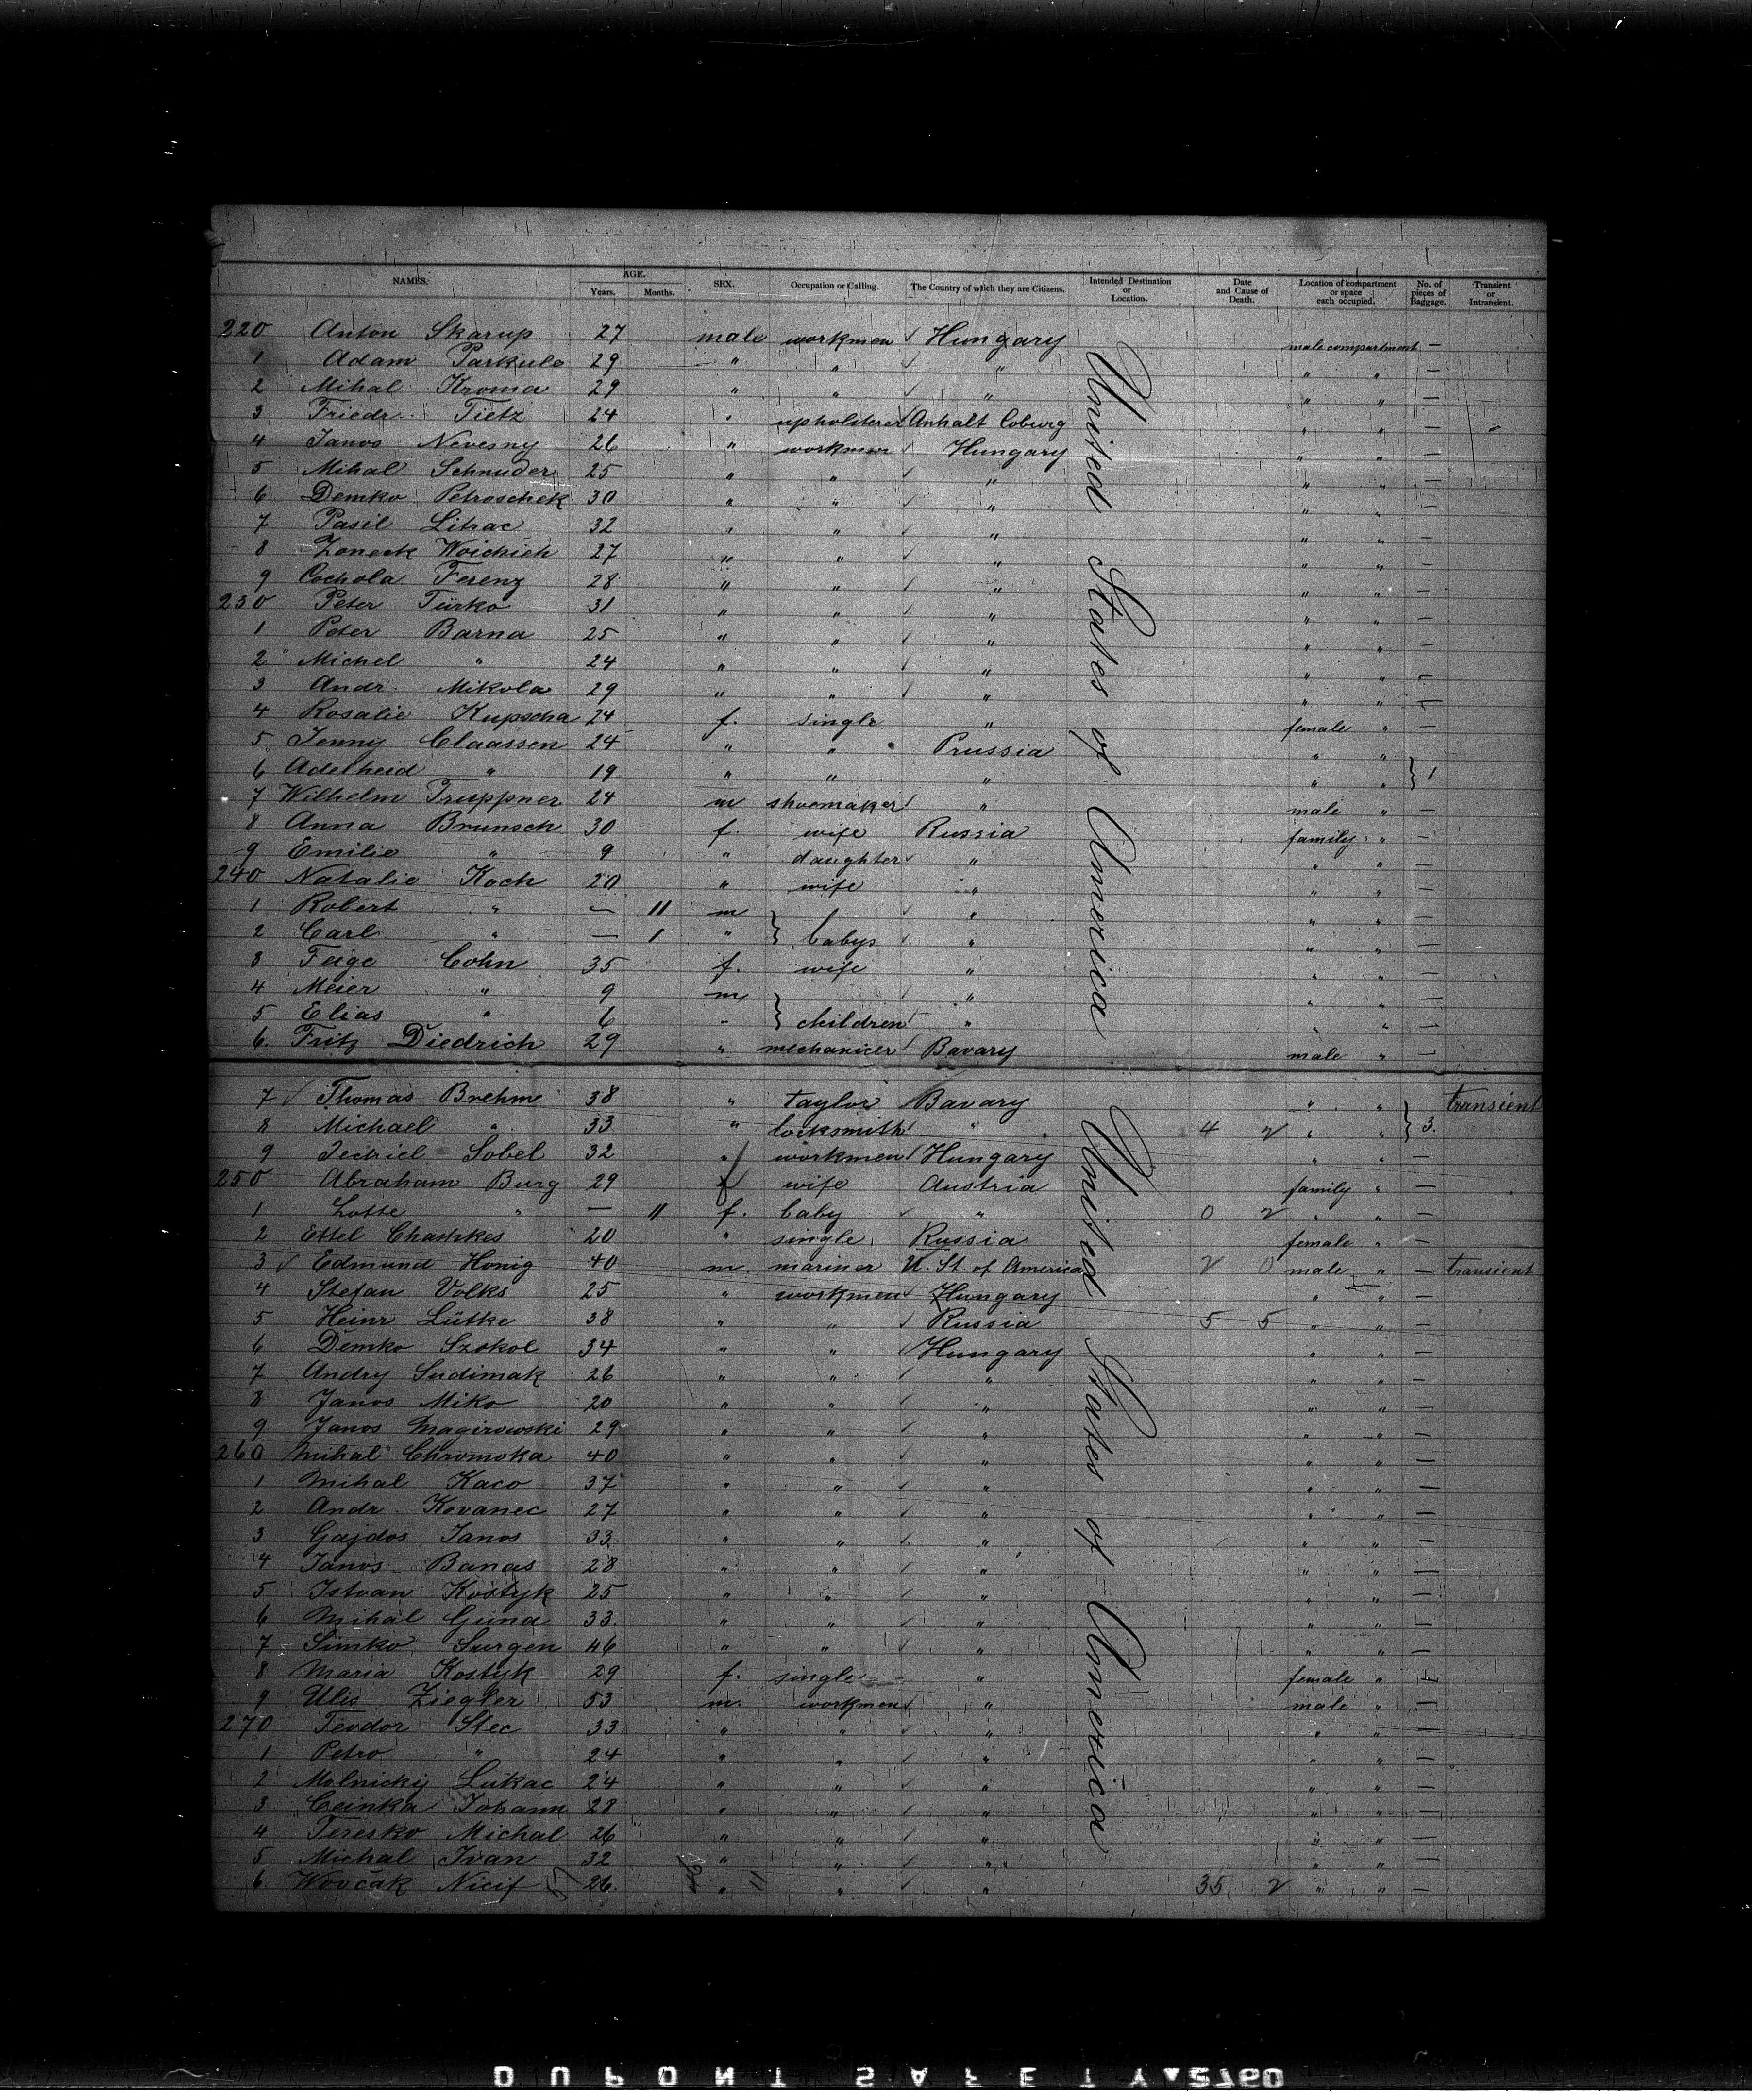 NAMES. AGE. Years. Months. SEX. Occupation or Calling. The Country of which they are Citizens. Intended Destination or Location. Date and Cause of Death. Location of compartment or space each occupied. No. of pieces of Baggage. Transient or Intransient.
220 Anton Skarup 27 male workmen Hungary male compartment —
1 Adam Parkulo 29 " " " " " —
2 Mihal Kroma 29 " " " " " —
3 Friedr. Tietz 24 " upholiterer Anhalt Coburg " " —
4 Janos Nevesny 26 " workmen Hungary " " —
5 Mihal Schnuder 25 " " " " " —
6 Demko Petroschek 30 " " " " " —
7 Pasil Litrac 32 " " " " " —
8 Zoneck Woichich 27 " " " " " —
9 Cochola Ferenz 28 " " " " " —
230 Peter Türko 31 " " " " " —
1 Peter Barna 25 " " " " " —
2 Michel " 24 " " " " " —
3 Andr Mikola 29 " " " " " —
4 Rosalie Kupscha 24 f. single " female " —
5 Jenny Claassen 24 " " Prussia " "
6 Adelheid " 19 " " " " " } 1
7 Wilhelm Truppner 24 m shoemaker " male " —
8 Anna Brunsch 30 f. wife Russia family " —
9 Emilie " 9 " daughter " " " —
240 Natalie Koch 20 " wife " " " —
1 Robert " — 11 m " " " —
2 Carl " — 1 " } babys " " " —
3 Feige Cohn 35 f. wife " " " —
4 Meier " 9 m " " " —
5 Elias " 6 " } children " " " —
6 Fritz Diedrich 29 " mechanicer Bavary male " —
7 Thomas Brehm 38 " taylor Bavary " " transient
8 Michael " 33 " locksmith " 4 2 " " } 3.
9 Jechiel Sobel 32 " workmen Hungary " " —
250 Abraham Burg 29 f wife Austria family " —
1 Lotte " — 11 f. baby " 0 2 " " —
2 Ettel Chashkes 20 " single Russia female " —
3 Edmund Honig 40 m. mariner U. St. of America 2 0 male " — transient
4 Stefan Volks 25 " workmen Hungary " " —
5 Heinr Lütke 38 " " Russia 5 5 " " —
6 Demko Szokol 34 " " Hungary " " —
7 Andry Sudimak 26 " " " " " —
8 Janos Miko 20 " " " " " —
9 Janos Magirowski 29 " " " " " —
260 Mihal Chromoka 40 " " " " " —
1 Mihal Kaco 37 " " " " " —
2 Andr. Kovanec 27 " " " " " —
3 Gajdos Janos 33 " " " " " —
4 Janos Banas 28 " " " " " —
5 Istvan Kostyk 25 " " " " " —
6 Mihal Guna 33 " " " " " —
7 Simko Surgen 46 " " " " " —
8 Maria Kostyk 29 f. single " female " —
9 Ulis Ziegler 53 m. workmen " male " —
270 Teodor Stec 33 " " " " " —
1 Petro " 24 " " " " " —
2 Molnickij Lukac 24 " " " " " —
3 Ceinka Johann 28 " " " " " —
4 Teresko Michal 26 " " " " " —
5 Michal Ivan 32 " " " " " —
6 Wovčak Nicif 26 " " " 35 2 " " —
United States of America
United States of America
DUPONT SAFETY 2760